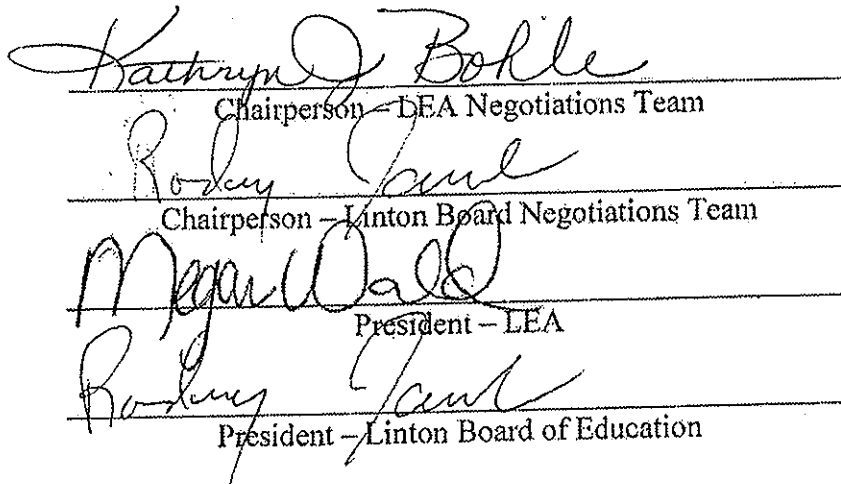 Kathryn J Bohle
Chairperson – LEA Negotiations Team
Rodney
Chairperson – Linton Board Negotiations Team
Megan Wald
President – LEA
Rodney
President – Linton Board of Education